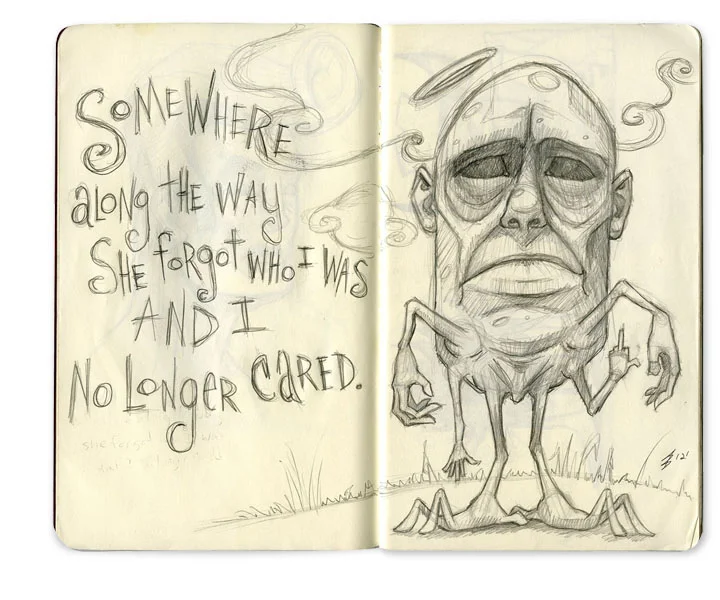 SOMEWHERE
aLONg tHE WAY
SHE forgot WHO I WAS
AND I
NO LONger CaRED.
she forgot
'12!